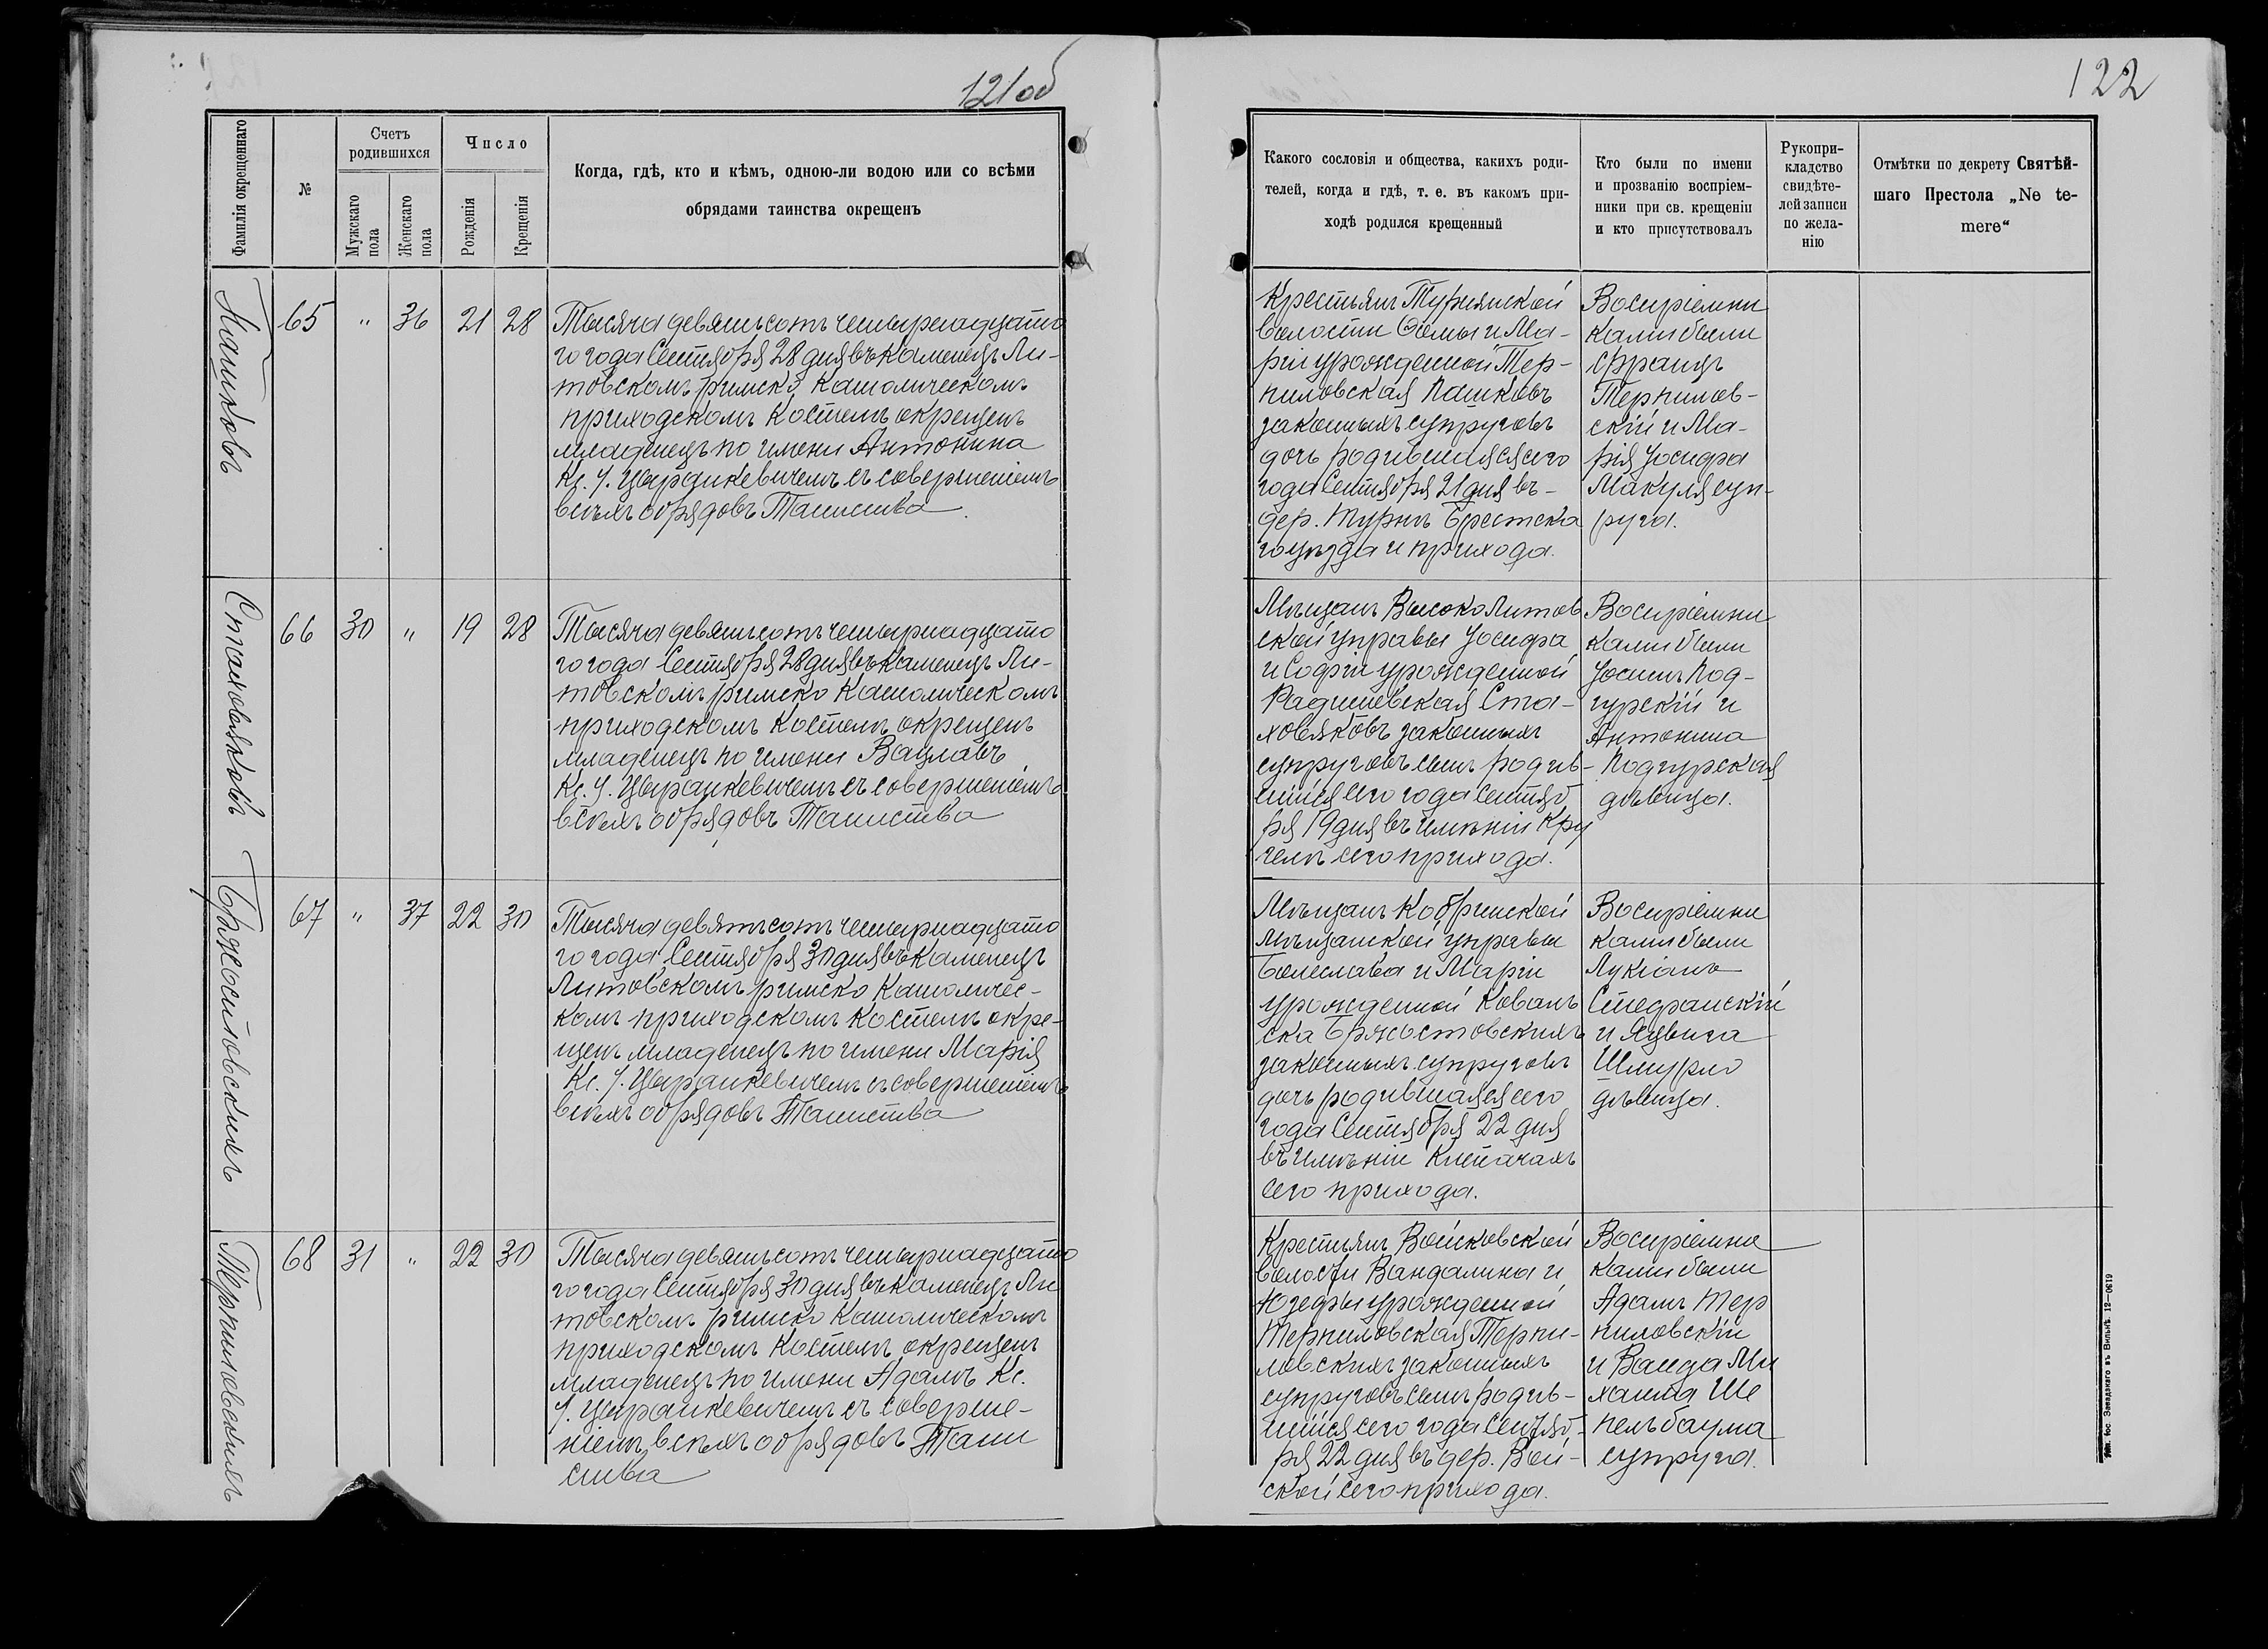 121об
Фамилія окрещеннаго
№
Счетъ
родившихся
Мужскаго
пола
Женскаго
пола
Число
Рожденія
Крещенія
Когда, гдѣ, кто и кѣмъ, одною-ли водою или со всѣми
обрядами таинства окрещенъ
Пашковъ
65 " 36 21 28
Тысяча девятьсотъ четырнадцато
го года Сентября 28 дня въ Каменецъ Ли-
товскомъ римско Католическомъ
приходскомъ Костелѣ окрещенъ
младенецъ по имени Антонина
Кс. І. Цыранкевичемъ съ совершеніемъ
всѣхъ обрядовъ Таинства
Стаховяковъ
66 30 " 19 28
Тысяча девятьсотъ четырнадцато
го года Сентября 28 дня въ Каменецъ Ли-
товскомъ римско Католическомъ
приходскомъ Костелѣ окрещенъ
младенецъ по имени Вацлавъ
Кс. І. Цыранкевичемъ съ совершеніемъ
всѣхъ обрядовъ Таинства
Бржостовскихъ
67 " 37 22 30
Тысяча девятьсотъ четырнадцато
го года Сентября 30 дня въ Каменецъ
Литовскомъ римско Католичес-
комъ приходскомъ Костелѣ окре-
щенъ младенецъ по имени Марія
Кс. І. Цыранкевичемъ съ совершеніемъ
всѣхъ обрядовъ Таинства
Терпиловскихъ
68 31 " 22 30
Тысяча девятьсотъ четырнадцато
го года Сентября 30 дня въ Каменецъ Ли
товскомъ римско Католическомъ
приходскомъ Костелѣ окрещенъ
младенецъ по имени Адамъ Кс.
І. Цыранкевичемъ съ соверше-
ніемъ всѣхъ обрядовъ Таин
ства
122
Какого сословія и общества, какихъ роди-
телей, когда и гдѣ, т. е. въ какомъ при-
ходѣ родился крещенный
Кто были по имени
и прозванію воспріем-
ники при св. крещеніи
и кто присутствовалъ
Рукопри-
кладство
свидѣте-
лей записи
по жела-
нію
Отмѣтки по декрету Святѣй-
шаго Престола „Ne te-
mere“
Крестьянъ Турнянской
волости Ѳомы и Ма-
ріи урожденной Тер-
пиловская Пашковъ
законныхъ супруговъ
дочь родившаяся сего
года Сентября 21 дня въ
дер. Турнѣ Брестска
го уѣзда и прихода.
Воспріемни
ками были
Францъ
Терпилов-
скій и Ма-
рія Іосифа
Макуля суп-
руга.
Мѣщанъ Высоко Литов
ской управы Іосифа
и Софіи урожденной
Радишевская Ста-
ховяковъ законныхъ
супруговъ сынъ родив-
шійся сего года Сентяб
ря 19 дня въ имѣніи Кру
гелъ сего прихода.
Воспріемни
ками были
Іосифъ Под-
гурскій и
Антонина
Подгурская
дѣвица.
Мѣщанъ Кобринской
мѣщанской управы
Болеслава и Маріи
урожденной Коваль
ска Бржостовскихъ
законныхъ супруговъ
дочь родившаяся сего
года Сентября 22 дня
въ имѣніи Клепачахъ
сего прихода.
Воспріемни
ками были
Лукіанъ
Стефанскій
и Ядвига
Шмурло
дѣвица.
Крестьянъ Войсковской
волости Вандалина и
Юзефы урожденной
Терпиловская Терпи-
ловскихъ законныхъ
супруговъ сынъ родив-
шійся сего года Сентяб-
ря 22 дня въ дер. Вой-
ской сего прихода.
Воспріемни
ками были
Адамъ Тер
пиловскій
и Ванда Ми
хаила Ше
пельбаума
супруга.
Тип. Іос. Завадзкаго въ Вильнѣ. 12—0619